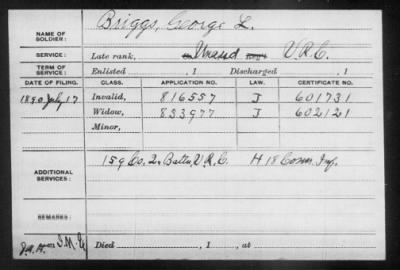 NAME OF SOLDIER: Briggs, George L.
SERVICE: Late rank, Unassd V.R.C.
TERM OF SERVICE: Enlisted , 1 Discharged , 1
DATE OF FILING. CLASS. APPLICATION NO. LAW. CERTIFICATE NO.
1890 July 17 Invalid, 816557 J 601731
Widow, 833977 J 602121
Minor,
ADDITIONAL SERVICES: 159 Co. 2. Batt. V.R.C. H 18 Conn Inf.
REMARKS:
Died , 1 , at